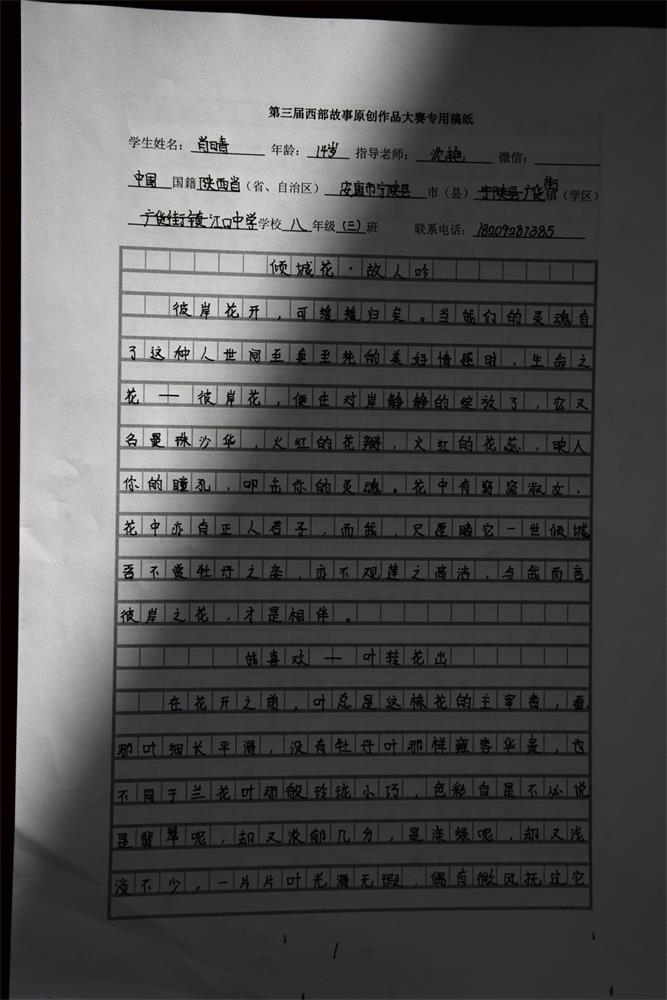 第三届西部故事原创作品大赛专用稿纸
学生姓名：肖晴 年龄：14岁 指导老师：沈艳 微信：
中国 国籍 陕西省（省、自治区） 安康市宁陕县 市（县） 宁陕县广货街镇（学区）
广货街镇江口中学 学校 八 年级（三）班 联系电话：18209287385
倾城花·故人吟
彼岸花开，可缓缓归矣。当我们的灵魂有
了这种人世间至真至纯的美好情感时，生命之
花—彼岸花，便在对岸静静的绽放了，它又
名曼珠沙华，火红的花瓣，火红的花蕊，映人
你的瞳孔，叩击你的灵魂。花中有窈窕淑女，
花中亦有正人君子，而我，只愿睹它一世倾城
吾不爱牡丹之姿，亦不观莲之高洁，与我而言
彼岸之花，才是相伴。
我喜欢—叶转花出
在花开之前，叶总是这株花的主宰者，看
那叶细长平滑，没有牡丹叶那样雍容华贵，也
不同于兰花叶那般玲珑小巧，色彩自是不必说
是翡翠呢，却又浓郁几分，是深绿呢，却又浅
淡不少，一片片叶光滑无瑕，偶有微风抚过它
1